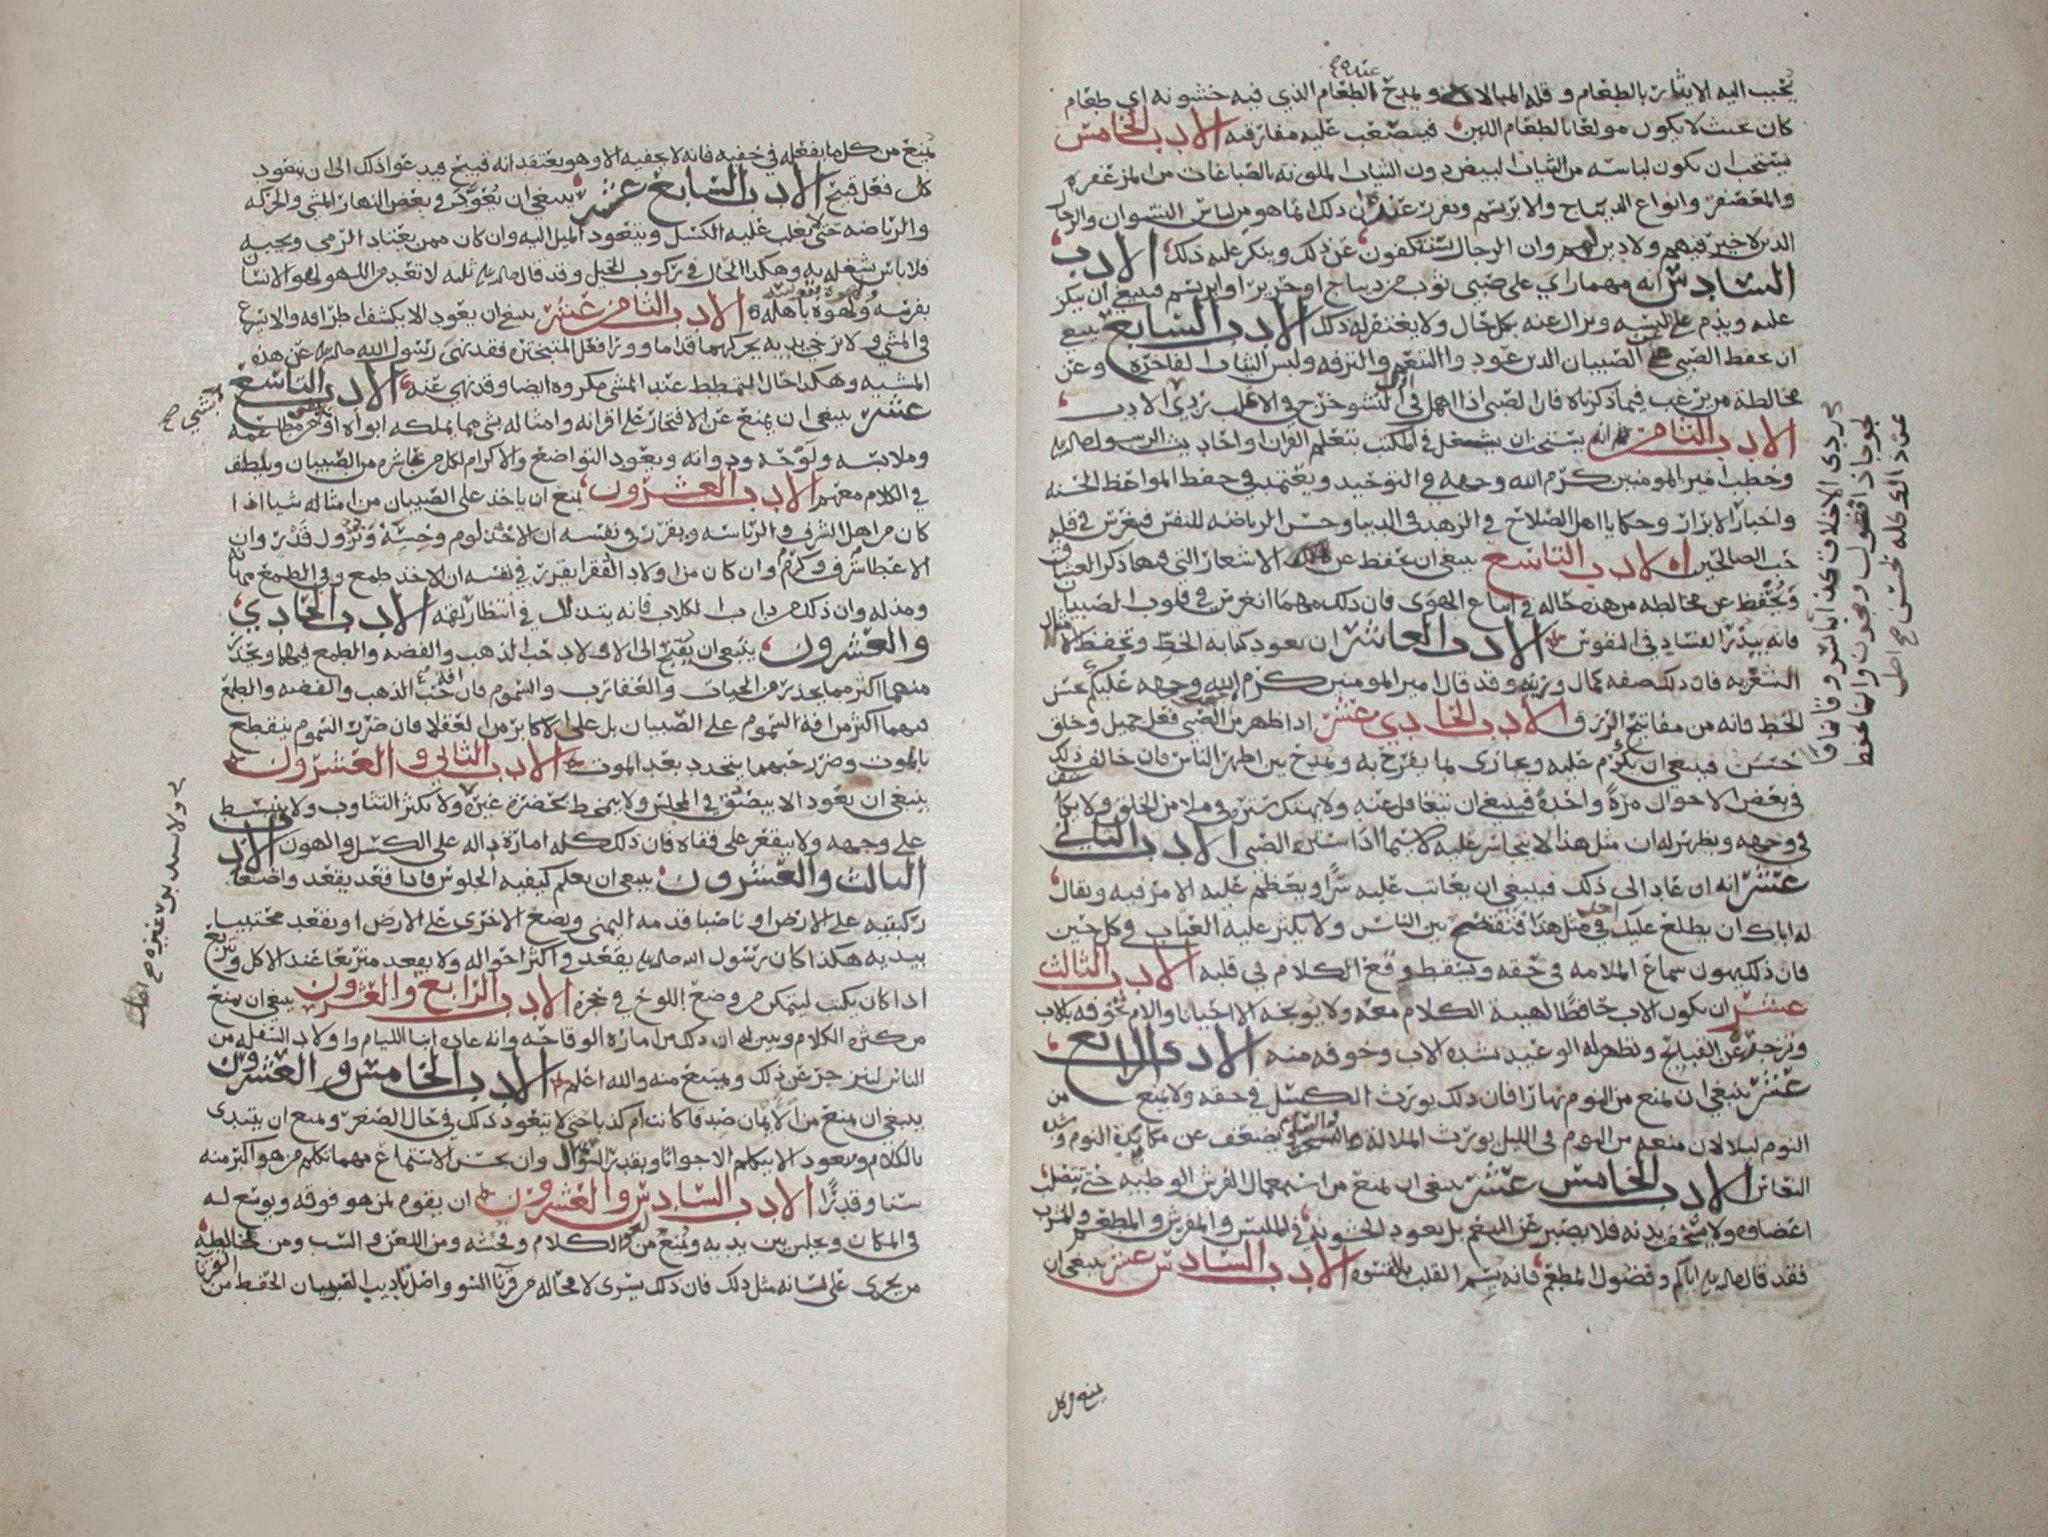 يحبب اليه الايثار بالطعام وقله المبالاه ويمدح الطعام الذي فيه خشونه اي طعام
كان بحيث لا يكون مولعا بالطعام اللين فيصعب عليه مفارقته الادب الخامس
يستحب ان يكون لباسه من الثياب البيض دون الثياب الملونه بالصباغات من المزعفره
والمعصفر وانواع الديباج والابريسم ويقرر عنده ان ذلك انما هو من لباس النسوان والرجال
الذين لا خير فيهم ولا دين لهم وان الرجال يستنكفون عن ذلك وينكر عليه ذلك الادب
السادس انه مهما راي على صبي ثوب من ديباج او حرير او ابريسم فينبغي ان ينكر
عليه ويذم على لبسه ويزال عنه بكل حال ولا يغتفر له ذلك الادب السابع ينبغي
ان يحفظ الصبي عن الصبيان الذين عودوا التنعم والترفه ولبس الثياب الفاخره وعن
مخالطة من يرغب فيما ذكرناه فان الصبي اذا اهمل في اول النشو خرج في الاغلب ردي الادب
الادب الثامن انه يستحب ان يشغل في المكتب بتعلم القران واحاديث الرسول
وخطب امير المومنين كرم الله وجهه في التوحيد ويعتمد في حفظ المواعظ الحسنه
واخبار الابرار وحكايا اهل الصلاح في الزهد في الدنيا وحسن الرياضه للنفس فيغرس في قلبه
حب الصالحين الادب التاسع ينبغي ان يحفظ عن الاشعار التي فيها ذكر العشاق
ويحفظ عن مخالطه من هذه حاله في اتباع الهوى فان ذلك مهما انغرس في قلوب الصبيان
فانه يبذر الفساد في النفوس الادب العاشر ان يعود كتابه الخط وتحفظ الامثال
الشعريه فان ذلك صفه كمال وزينه وقد قال امير المومنين كرم الله وجهه عليكم بحسن
الخط فانه من مفاتيح الرزق الادب الحادي عشر اذا ظهر من الصبي فعل جميل وخلق
حسن فينبغي ان يكرم عليه ويجازى بما يفرح به ويمدح بين اظهر الناس فان خالف ذلك
في بعض الاحوال مرة واحدة فينبغي ان يتغافل عنه ولا يهتك ستره في ملا من الخلق ولا يكاشف
في وجهه ويظهر له ان مثل هذا لا يتجاسر عليه لا سيما اذا ستره الصبي الادب الثاني
عشر انه ان عاد الى ذلك فينبغي ان يعاتب عليه سرا ويعظم عليه الامر فيه ويقال
له اياك ان يطلع عليك احد في مثل هذا فتفتضح بين الناس ولا يكثر عليه العتاب في كل حين
فان ذلك يهون سماع الملامه في حقه ويسقط وقع الكلام في قلبه الادب الثالث
عشر ان يكون الاب حافظا لهيبة الكلام معه ولا يوبخه الا احيانا والام تخوفه بالاب
وتزجره عن القبايح وتظهر له الوعيد بشده الاب وخوفه منه الادب الرابع
عشر ينبغي ان يمنع من النوم نهارا فان ذلك يورث الكسل في حقه ولا يمنع من
النوم ليلا لان منعه من النوم في الليل يورث الملالة ويضعف عن مكابدة النوم وشده
النعاس الادب الخامس عشر ينبغي ان يمنع من استعمال الفرش الوطييه حتى تتصلب
اعضاوه ولا يستخف بدنه فلا يصبر عن التنعم بل يعود الخشونه في الملبس والمفرش والمطعم والمشرب
فقد قال اياكم وفضول المطعم فانه يسم القلب بالقسوه الادب السادس عشر ينبغي ان
يمنعه من كل
يمنع من كل ما يفعله في خفيه فانه لا يخفيه الا وهو يعتقد انه قبيح فيدعو ذلك الى ان يتعود
كل فعل قبيح الادب السابع عشر ينبغي ان يعود في بعض النهار المشي والحركه
والرياضه حتى لا يغلب عليه الكسل ويتعود الميل اليه وان كان ممن يعتاد الرمي ويحبه
فلا باس شغله به وهكذا الحال في ركوب الخيل وقد قال ثلثه لا تعد من اللهو لهو الانسان
بفرسه ولهوه باهله الادب الثامن عشر ينبغي ان يعود الا يكشف اطرافه ولا يسرع
في المشي ولا يرخي يديه يحركهما قداما وورا فعل المتبختره فقد نهى رسول الله عن هذه
المشيه وهكذا حال التمطط عند المشي مكروه ايضا وقد نهي عنه الادب التاسع
عشر ينبغي ان يمنع عن الافتخار على اقرانه وامثاله بشي مما يملكه ابواه او بشي من مطاعمه
وملابسه ولوحه ودواته ويعود التواضع والاكرام لكل من عاشره من الصبيان ويلطف
في الكلام معهم الادب العشرون يمنع ان ياخذ على الصبيان من امثاله شيا اذا
كان من اهل الشرف والرياسه ويقرر في نفسه ان الاخذ لوم وخسة ونزول قدر وان
الاعطا شرف وكرم وان كان من اولاد الفقرا يقرر في نفسه ان الاخذ طمع وفي الطمع مهانه
ومذله وان ذلك من داب الكلاب فانه يتذلل في انتظار لقمه الادب الحادي
والعشرون ينبغي ان يقبح الى الاولاد حب الذهب والفضه والطمع فيهما ويحذر
منهما اكثر مما يحذر من الحيات والعقارب والسموم فان افه حب الذهب والفضه والطمع
فيهما اكثر من افه السموم على الصبيان بل على الاكابر من العقلا فان ضرر السموم ينقطع
بالموت وضرر حبهما يتجدد بعد الموت الادب الثاني والعشرون
ينبغي ان يعود الا يبصق في المجلس ولا يمخط بحضرة غيره ولا يكثر التثاوب ولا ينبسط
على وجهه ولا يقعر على قفاه فان ذلك كله امارة داله على الكسل والهون الادب
الثالث والعشرون ينبغي ان يعلم كيفيه الجلوس فاذا قعد يقعد واضعا
ركبتيه على الارض او ناصبا قدمه اليمنى ويضع الاخرى على الارض او يقعد محتبيا
بيديه هكذا كان رسول الله يقعد في اكثر احواله ولا يقعد متربعا عند الاكل ويتربع
اذا كان يكتب ليتمكن من وضع اللوح في حجره الادب الرابع والعشرون ينبغي ان يمنع
من كثره الكلام ويبين له ان ذلك من امارة الوقاحه وانه عاده ابنا الليام واولاد السفله من
الناس لينزجر عن ذلك ويمتنع منه والله اعلم الادب الخامس والعشرون
ينبغي ان يمنع من الايمان صدقا كانت ام كذبا حتى لا يتعود ذلك في حال الصغر ويمنع ان يبتدي
بالكلام ويعود الا يتكلم الا جوابا وبقدر السوال وان يحسن الاستماع مهما تكلم من هو اكبر منه
سنا وقدرا الادب السادس والعشرون ان يقوم لمن هو فوقه ويوسع له
في المكان ويجلس بين يديه ويمنع من لغو الكلام وفحشه ومن اللعن والسب ومن مخالطة
من يجري على لسانه مثل ذلك فان ذلك يسري لا محاله من قرنا السو واصل تاديب الصبيان الحفظ من القرنا